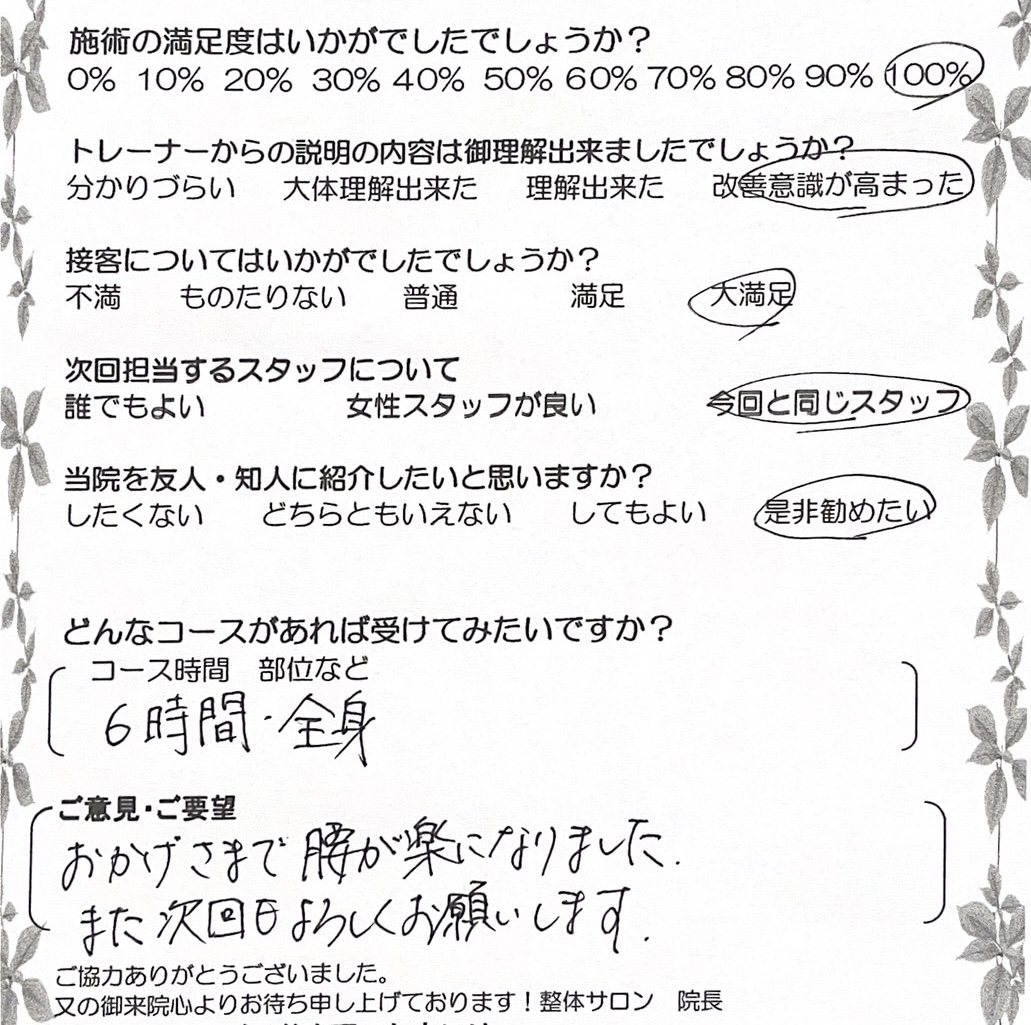 施術の満足度はいかがでしたでしょうか？
0% 10% 20% 30% 40% 50% 60% 70% 80% 90% 100%
トレーナーからの説明の内容は御理解出来ましたでしょうか？
分かりづらい 大体理解出来た 理解出来た 改善意識が高まった
接客についてはいかがでしたでしょうか？
不満 ものたりない 普通 満足 大満足
次回担当するスタッフについて
誰でもよい 女性スタッフが良い 今回と同じスタッフ
当院を友人・知人に紹介したいと思いますか？
したくない どちらともいえない してもよい 是非勧めたい
どんなコースがあれば受けてみたいですか？
コース時間 部位など
6時間・全身
ご意見・ご要望
おかげさまで腰が楽になりました.
また次回日よろしくお願いします.
ご協力ありがとうございました。
又の御来院心よりお待ち申し上げております！整体サロン 院長